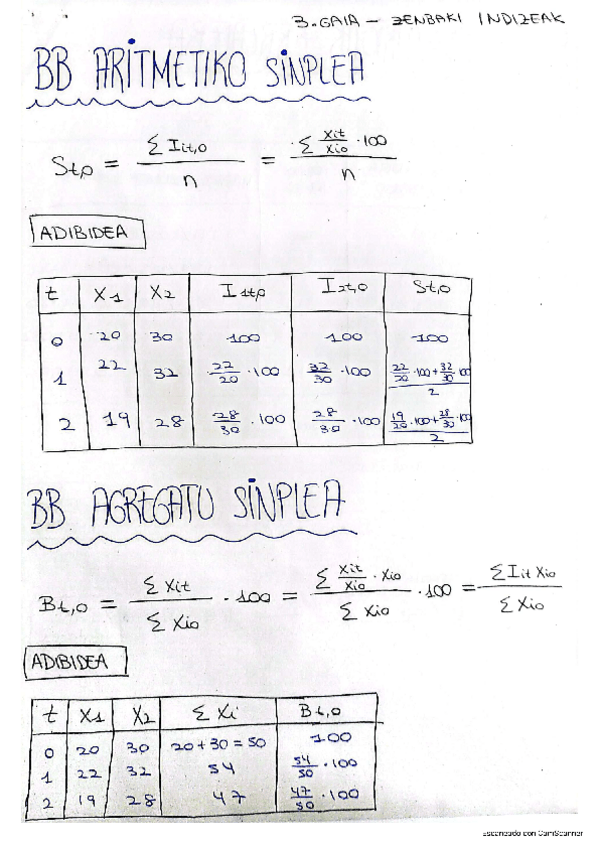 3.GAIA - ZENBAKI INDIZEAK
BB ARITMETIKO SINPLEA
St,0 = Σ Iit,0 / n = Σ Xit/Xio · 100 / n
ADIBIDEA
t X1 X2 I1t,0 I2t,0 St,0
0 20 30 100 100 100
1 22 32 22/20 · 100 32/30 · 100 22/20 · 100 + 32/30 · 100 / 2
2 19 28 28/30 · 100 28/30 · 100 19/20 · 100 + 28/30 · 100 / 2
BB AGREGATU SINPLEA
Bt,0 = Σ Xit / Σ Xio · 100 = Σ Xit/Xio · Xio / Σ Xio · 100 = Σ Iit Xio / Σ Xio
ADIBIDEA
t X1 X2 Σ Xi Bt,0
0 20 30 20+30=50 100
1 22 32 54 54/50 · 100
2 19 28 47 47/50 · 100
Escaneado con CamScanner